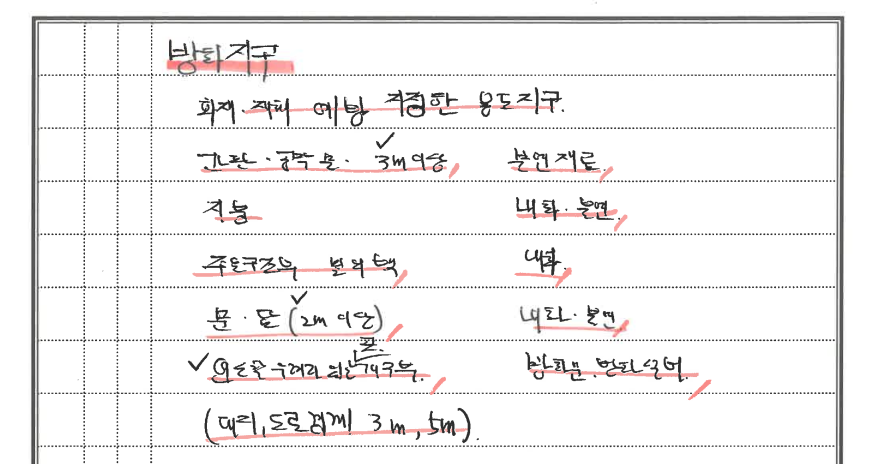 방화지구
화재·재해 예방 지정한 용도지구.
간판·공작물· 3m이상, 불연재료,
지붕 내화·불연,
주요구조부 및 외벽, 내화,
문·담 (2m 이상), 내화·불연,
연소할 우려가 있는 개구부, 방화문,
(대지,도로경계 3m, 5m).